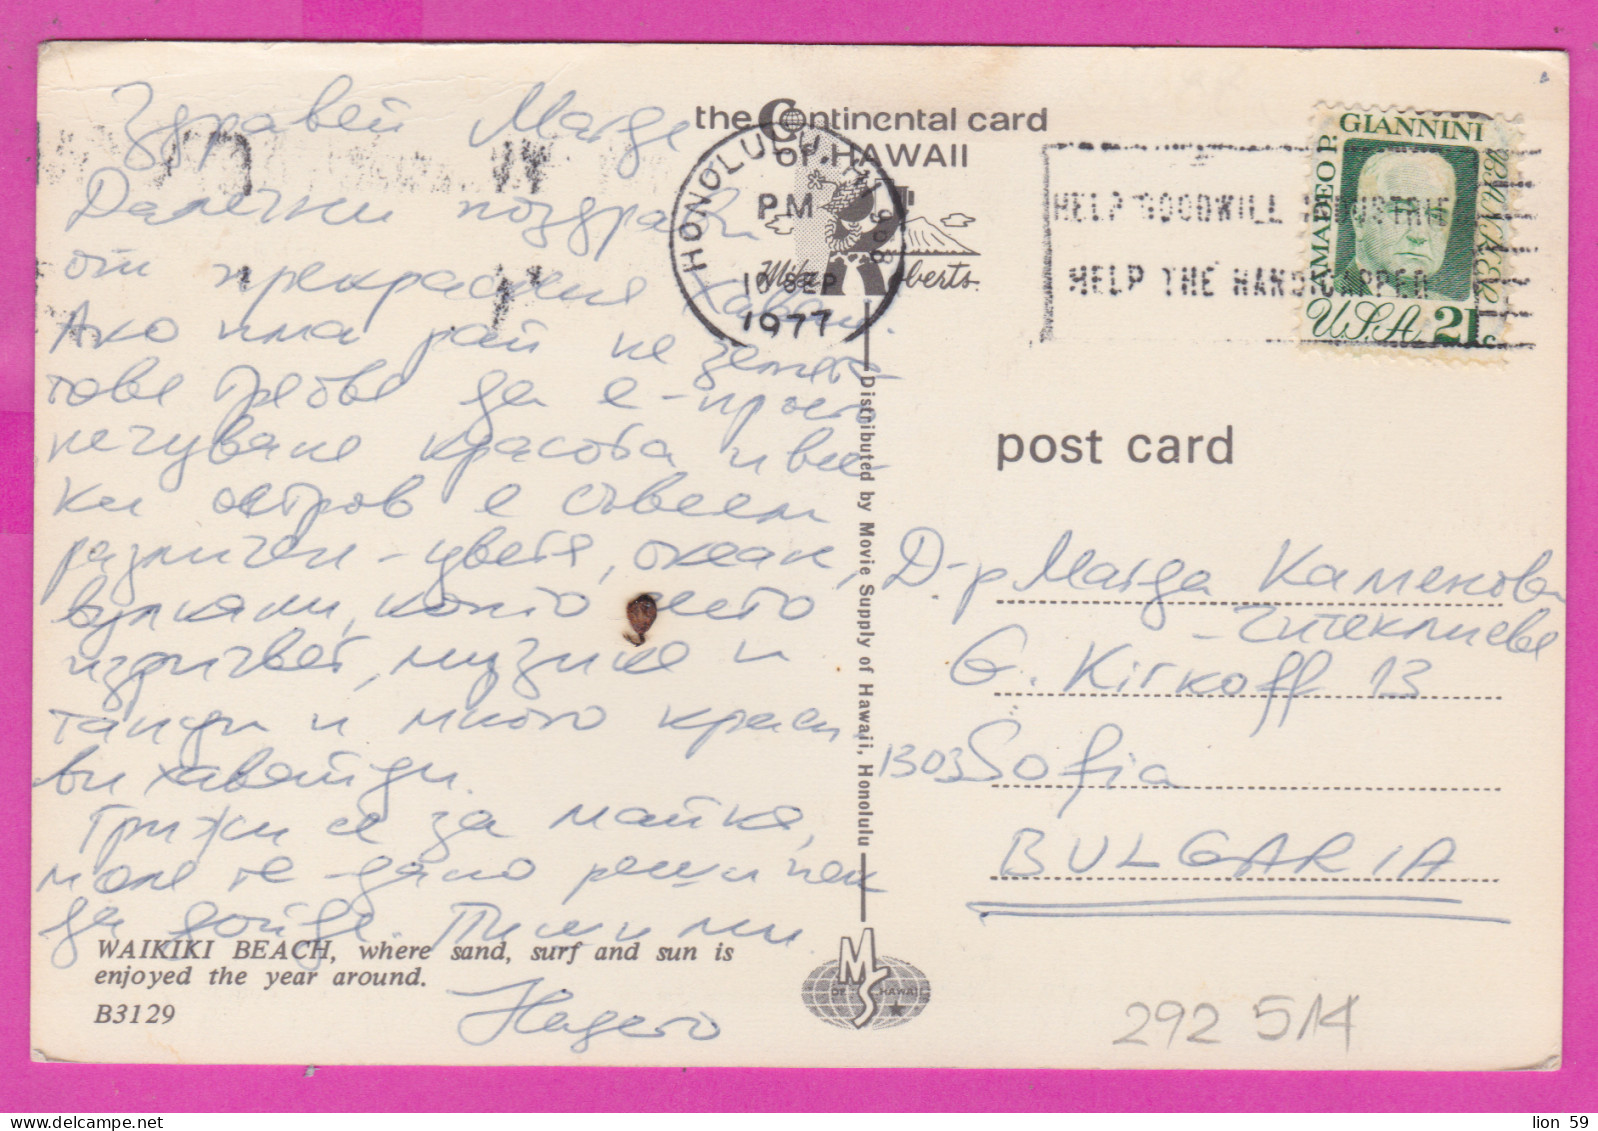 Здравей Магде
Далечни поздрави
от прекрасния Хавай.
Ако има рай на земята
това трябва да е - просто
нечувана красота и вся-
ки остров е съвсем
различен - цветя, океан,
вулкани, които често
изригват, музика и
танци и много краси
ви хавайци.
Грижи се за майка,
моля те - дано реши пак
да дойде. Пиши ми
the Continental card
of HAWAII
HONOLULU, HI 968
PM
10 SEP
1977
Mike Roberts
HELP GOODWILL INDUSTRIE
HELP THE HANDICAPPED
AMADEO P. GIANNINI
U.S.A. 21c
post card
Distributed by Movie Supply of Hawaii, Honolulu
Д-р Магда Каменова
G. Kirkoff 13
1303 Sofia
BULGARIA
WAIKIKI BEACH, where sand, surf and sun is
enjoyed the year around.
B3129
MS
OF HAWAII
292 514
lion 59